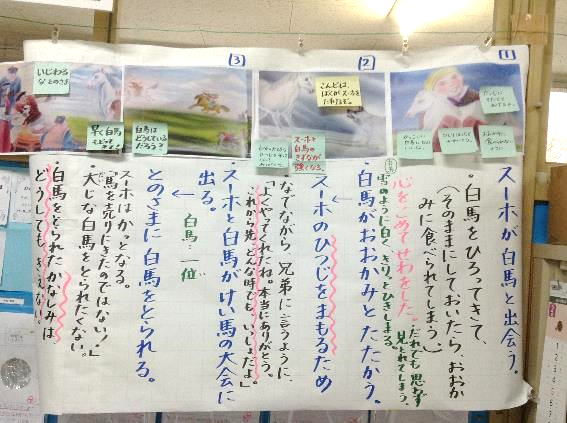 [1]
スーホが白馬と出会う。
・白馬をひろってきて、
（そのままにしておいたら、おおか
みに食べられてしまう。）
心をこめてせわをした。
だれでも思わず
見とれてしまう。
雪のように白く、きりっとひきしまる。
[2]
・白馬がおおかみとたたかう。
スーホのひつじをまもるため
←
なでながら、兄弟に言うように、
「よくやってくれたね。本当にありがとう。
これから先、どんな時でも、いっしょだよ。」
こんどは、
ぼくがスーホを
スーホと
白馬の
きずなが
強くなる。
[3]
・スーホと白馬がけい馬の大会に
出る。
白馬 一位
←
とのさまに白馬をとられる。
スーホはかっとなる。
「馬を売りにきたのではない！」
大じな白馬をとられたくない。
・白馬をとられたかなしみは
どうしても、きえない。
白馬は
どうしている
だろう？
いじわる
なとのさま
早く白馬